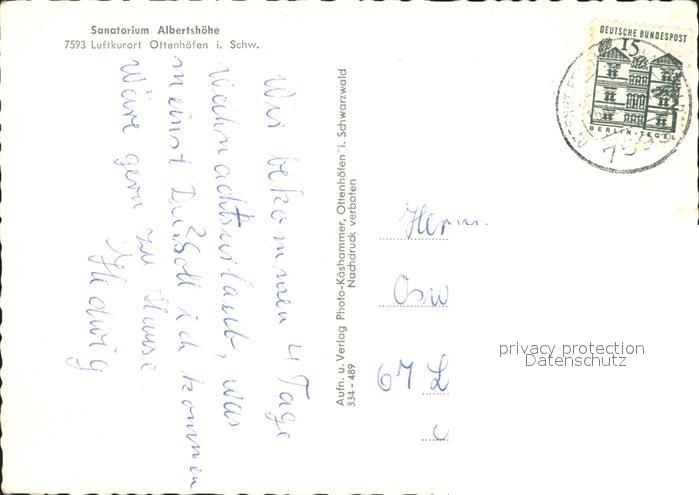 Sanatorium Albertshöhe
7593 Luftkurort Ottenhöfen i. Schw.
DEUTSCHE BUNDESPOST
15
BERLIN-TEGEL
7593
Wir bekommen 4 Tage
Weihnachtsurlaub, was
meinst Du? Soll ich kommen
wäre gern zu Hause
Hedwig
Aufn. u. Verlag Photo-Käshammer, Ottenhöfen i. Schwarzwald
334 - 489 Nachdruck verboten
Herrn
Osw
67 L
privacy protection
Datenschutz